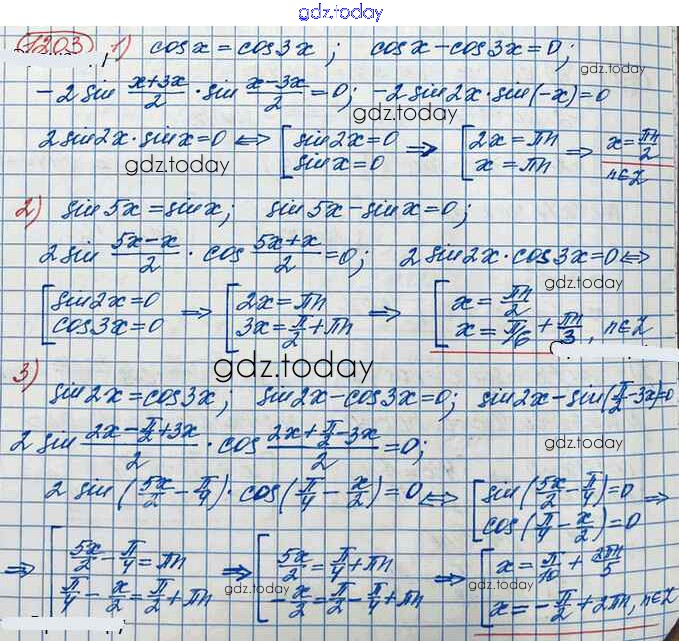 gdz.today
1203 1) cos x = cos 3x ; cos x - cos 3x = 0;
gdz.today
-2 sin (x+3x)/2 · sin (x-3x)/2 = 0; -2 sin 2x · sin(-x) = 0
gdz.today
2 sin 2x · sin x = 0 <=> [ sin 2x = 0 ; sin x = 0 => [ 2x = πn ; x = πn => x = πn/2
n∈Z
gdz.today
gdz.today
2) sin 5x = sin x; sin 5x - sin x = 0;
2 sin (5x-x)/2 · cos (5x+x)/2 = 0; 2 sin 2x · cos 3x = 0 <=>
gdz.today
[ sin 2x = 0 ; cos 3x = 0 => [ 2x = πn ; 3x = π/2 + πn => [ x = πn/2 ; x = π/6 + πn/3 , n∈Z
gdz.today
3) sin 2x = cos 3x; sin 2x - cos 3x = 0; sin 2x - sin(π/2 - 3x) = 0
gdz.today
2 sin (2x - π/2 + 3x)/2 · cos (2x + π/2 - 3x)/2 = 0;
gdz.today
2 sin (5x/2 - π/4) · cos (π/4 - x/2) = 0 <=> [ sin (5x/2 - π/4) = 0 ; cos (π/4 - x/2) = 0 =>
=> [ 5x/2 - π/4 = πn ; π/4 - x/2 = π/2 + πn => [ 5x/2 = π/4 + πn ; -x/2 = π/2 - π/4 + πn => [ x = π/10 + 2πn/5 ; x = -π/2 + 2πn, n∈Z
gdz.today
gdz.today